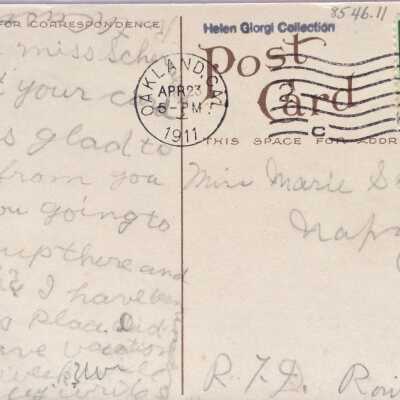 8546.11
FOR CORRESPONDENCE
Helen Giorgi Collection
Post
Card
OAKLAND, CAL.
APR 23
5-PM
1911
C
THIS SPACE FOR ADDR
miss Sche
your ca
s glad to
from you
ou going to
up there and
I have been
s place. Did
ave vacation
write
Miss Marie S
Napa
R.F.D. Rou